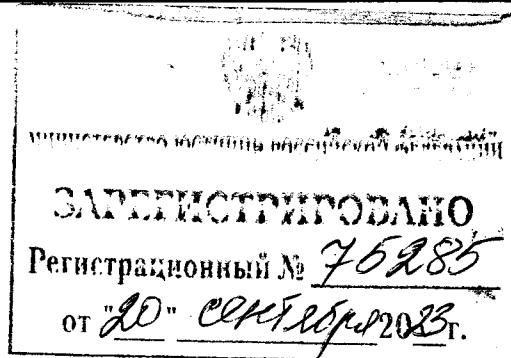 МИНИСТЕРСТВО ЮСТИЦИИ РОССИЙСКОЙ ФЕДЕРАЦИИ
ЗАРЕГИСТРИРОВАНО
Регистрационный № 75285
от "20" сентября 2023г.